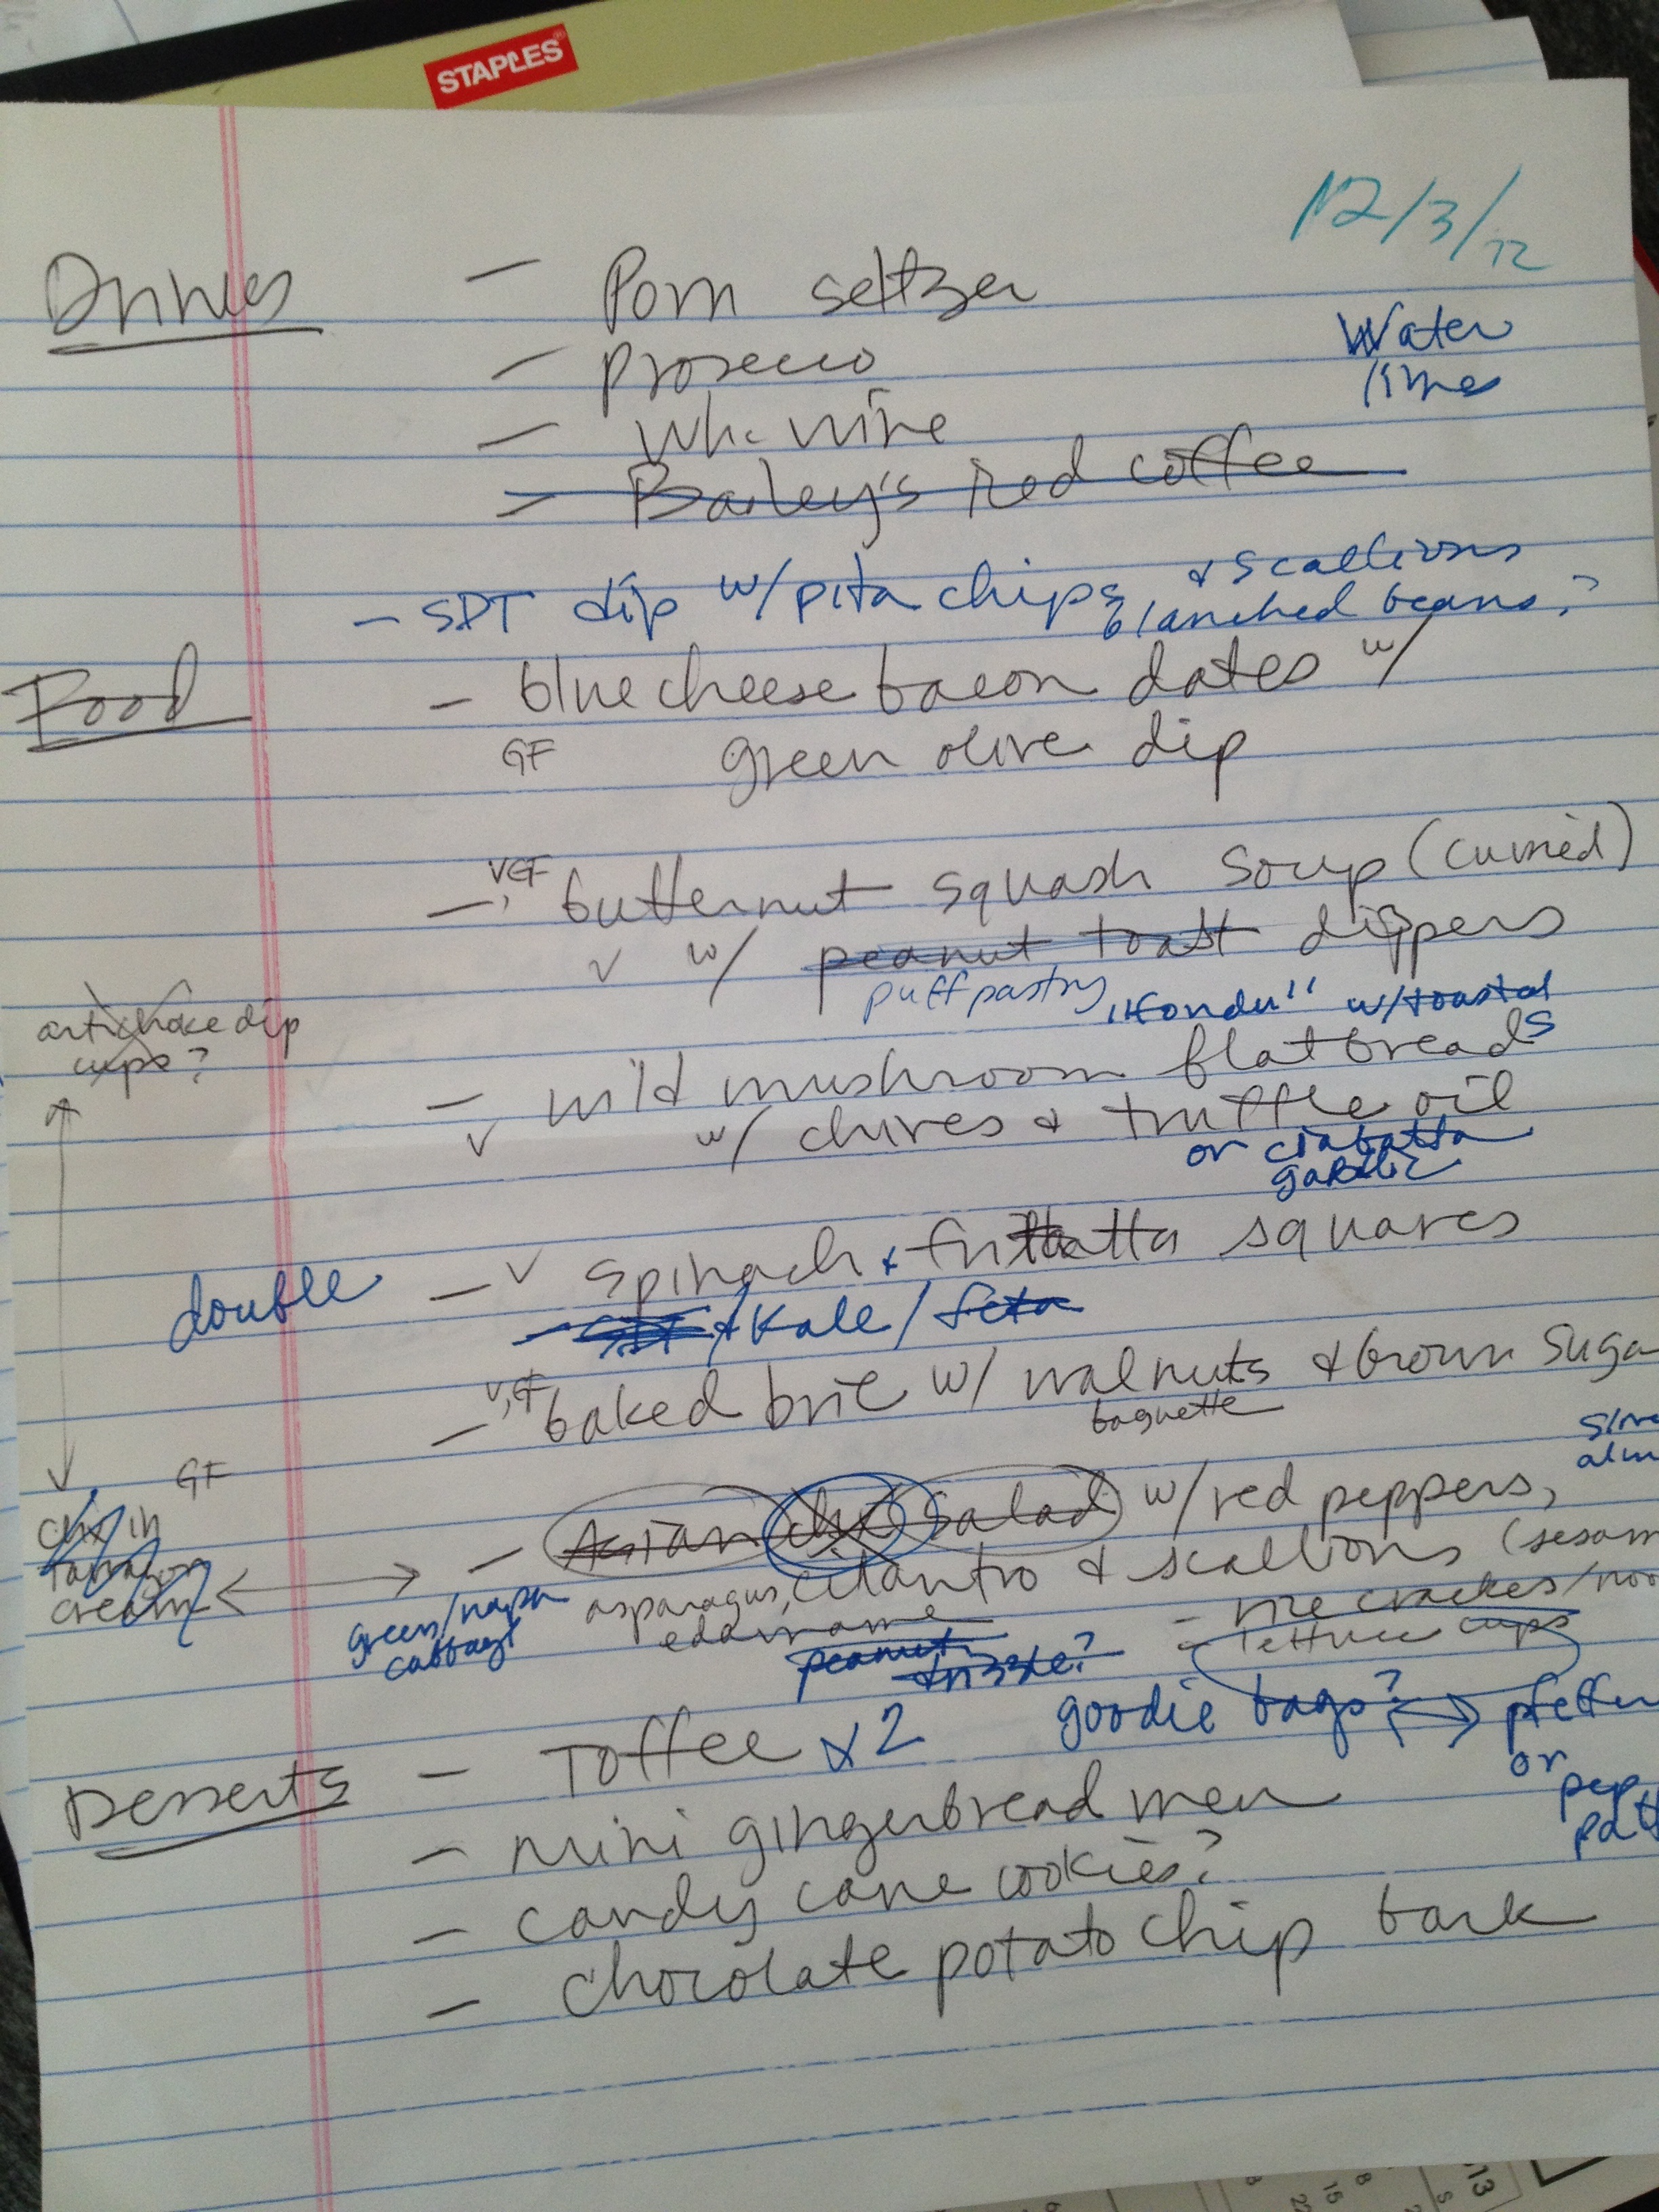 STAPLES
12/3/12
Drinks - Pom seltzer
Water
- Prosecco
limes
- Wh. wine
- Bailey's iced coffee
- SDT dip w/ pita chips & scallions
blanched beans?
Food - blue cheese bacon dates w/
GF green olive dip
- V GF butternut squash soup (curried)
V w/ peanut toast dippers
puff pastry "fondu" w/ toasted
artichoke dip
cups?
- wild mushroom flatbreads
V w/ chives & truffle oil
or ciabatta
garlic
double - V spinach & frittatta squares
- SDT & Kale / feta
- V, GF baked brie w/ walnuts & brown suga
baguette
GF
- Asian chx salad w/ red peppers,
chx in
tarragon
cream
asparagus, cilantro & scallions (sesam
edamame
green/napa
cabbage
- rice crackers/noo
- lettuce cups
peanut
drizzle?
goodie bags? pfeffer
or
pep
patt
Desserts - Toffee x2
- mini gingerbread men
- candy cane cookies?
- chocolate potato chip bark
13